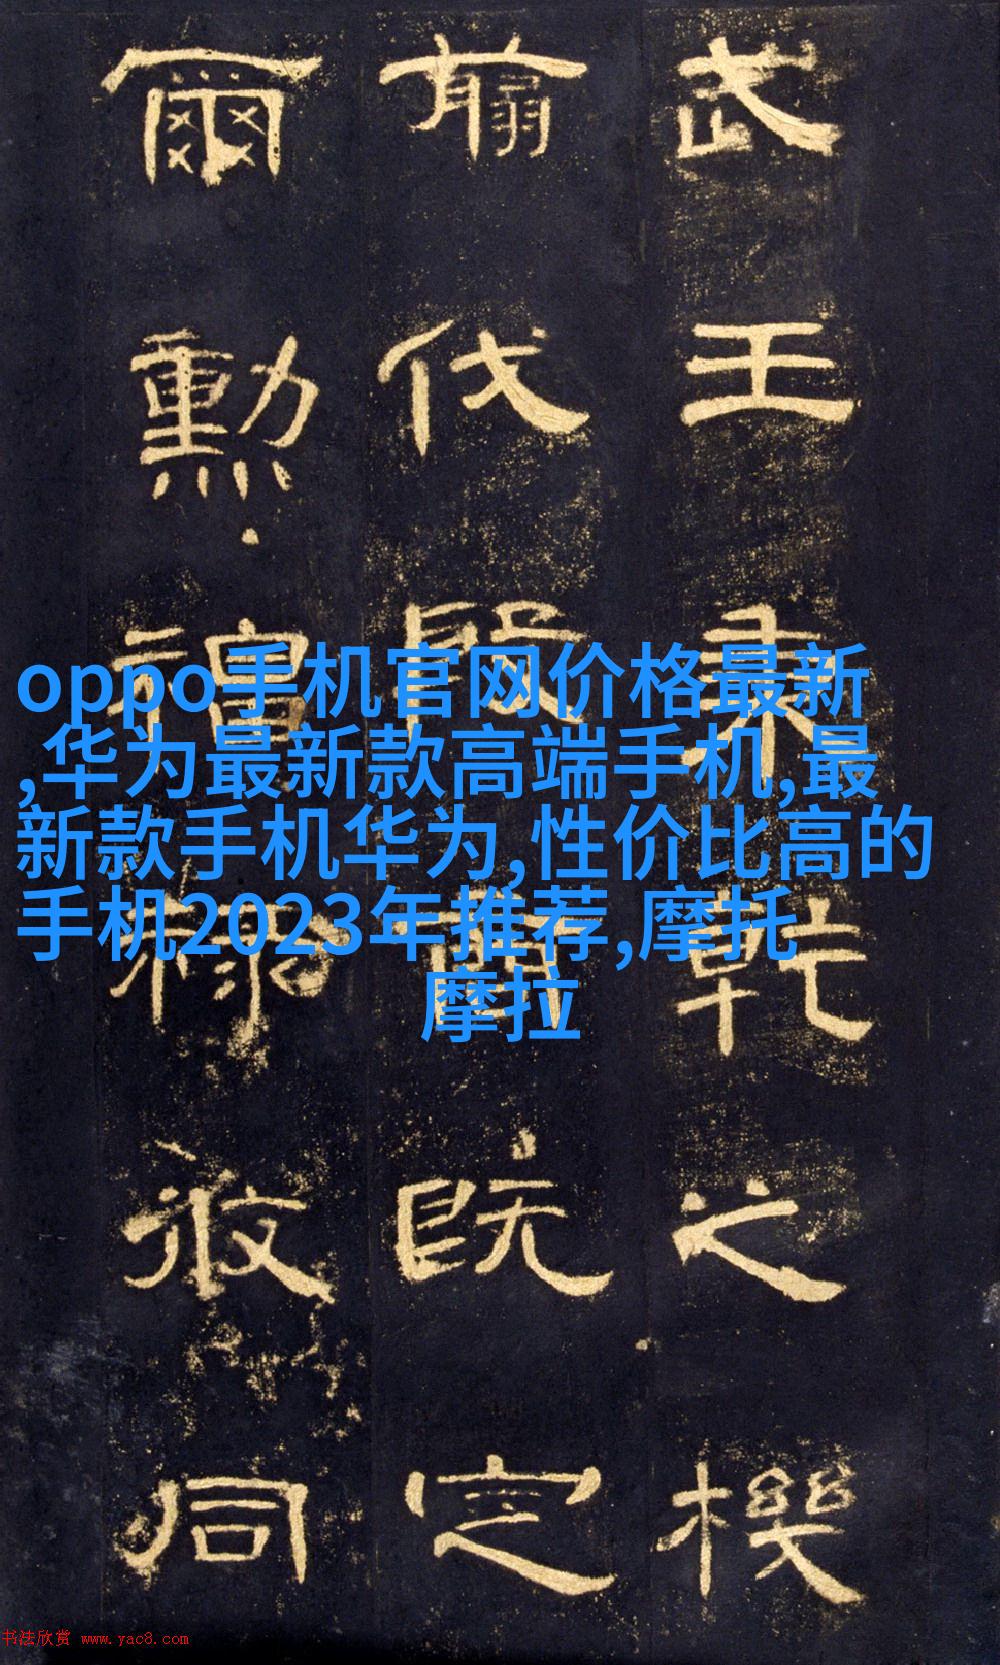 武王秉乾之機
翦伐殷商既定
爾勳福祿攸同
oppo手机官网价格最新
,华为最新款高端手机,最
新款手机华为,性价比高的
手机2023年推荐,摩托
摩拉
书法欣赏 www.yac8.com